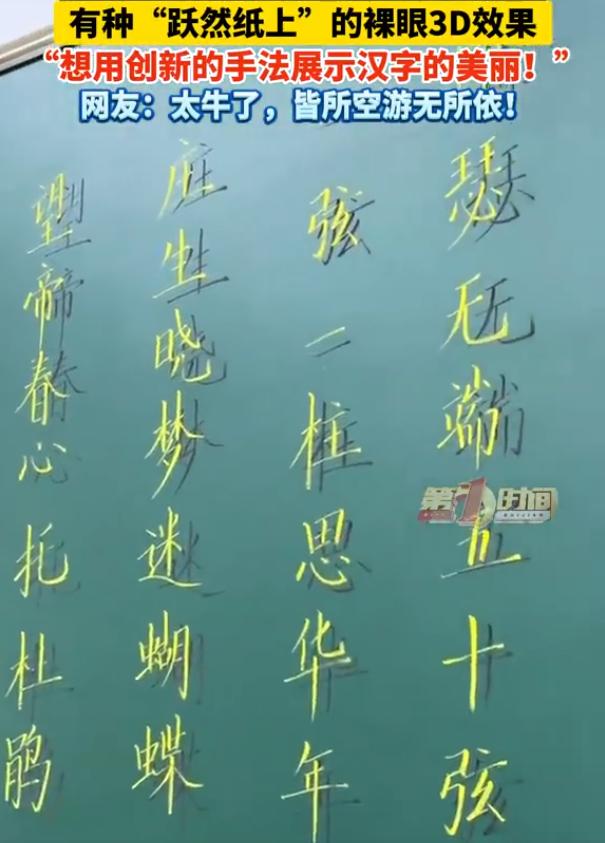 有种“跃然纸上”的裸眼3D效果
“想用创新的手法展示汉字的美丽！”
网友：太牛了，皆所空游无所依！
瑟无端五十弦
弦一柱思华年
庄生晓梦迷蝴蝶
望帝春心托杜鹃
第1时间